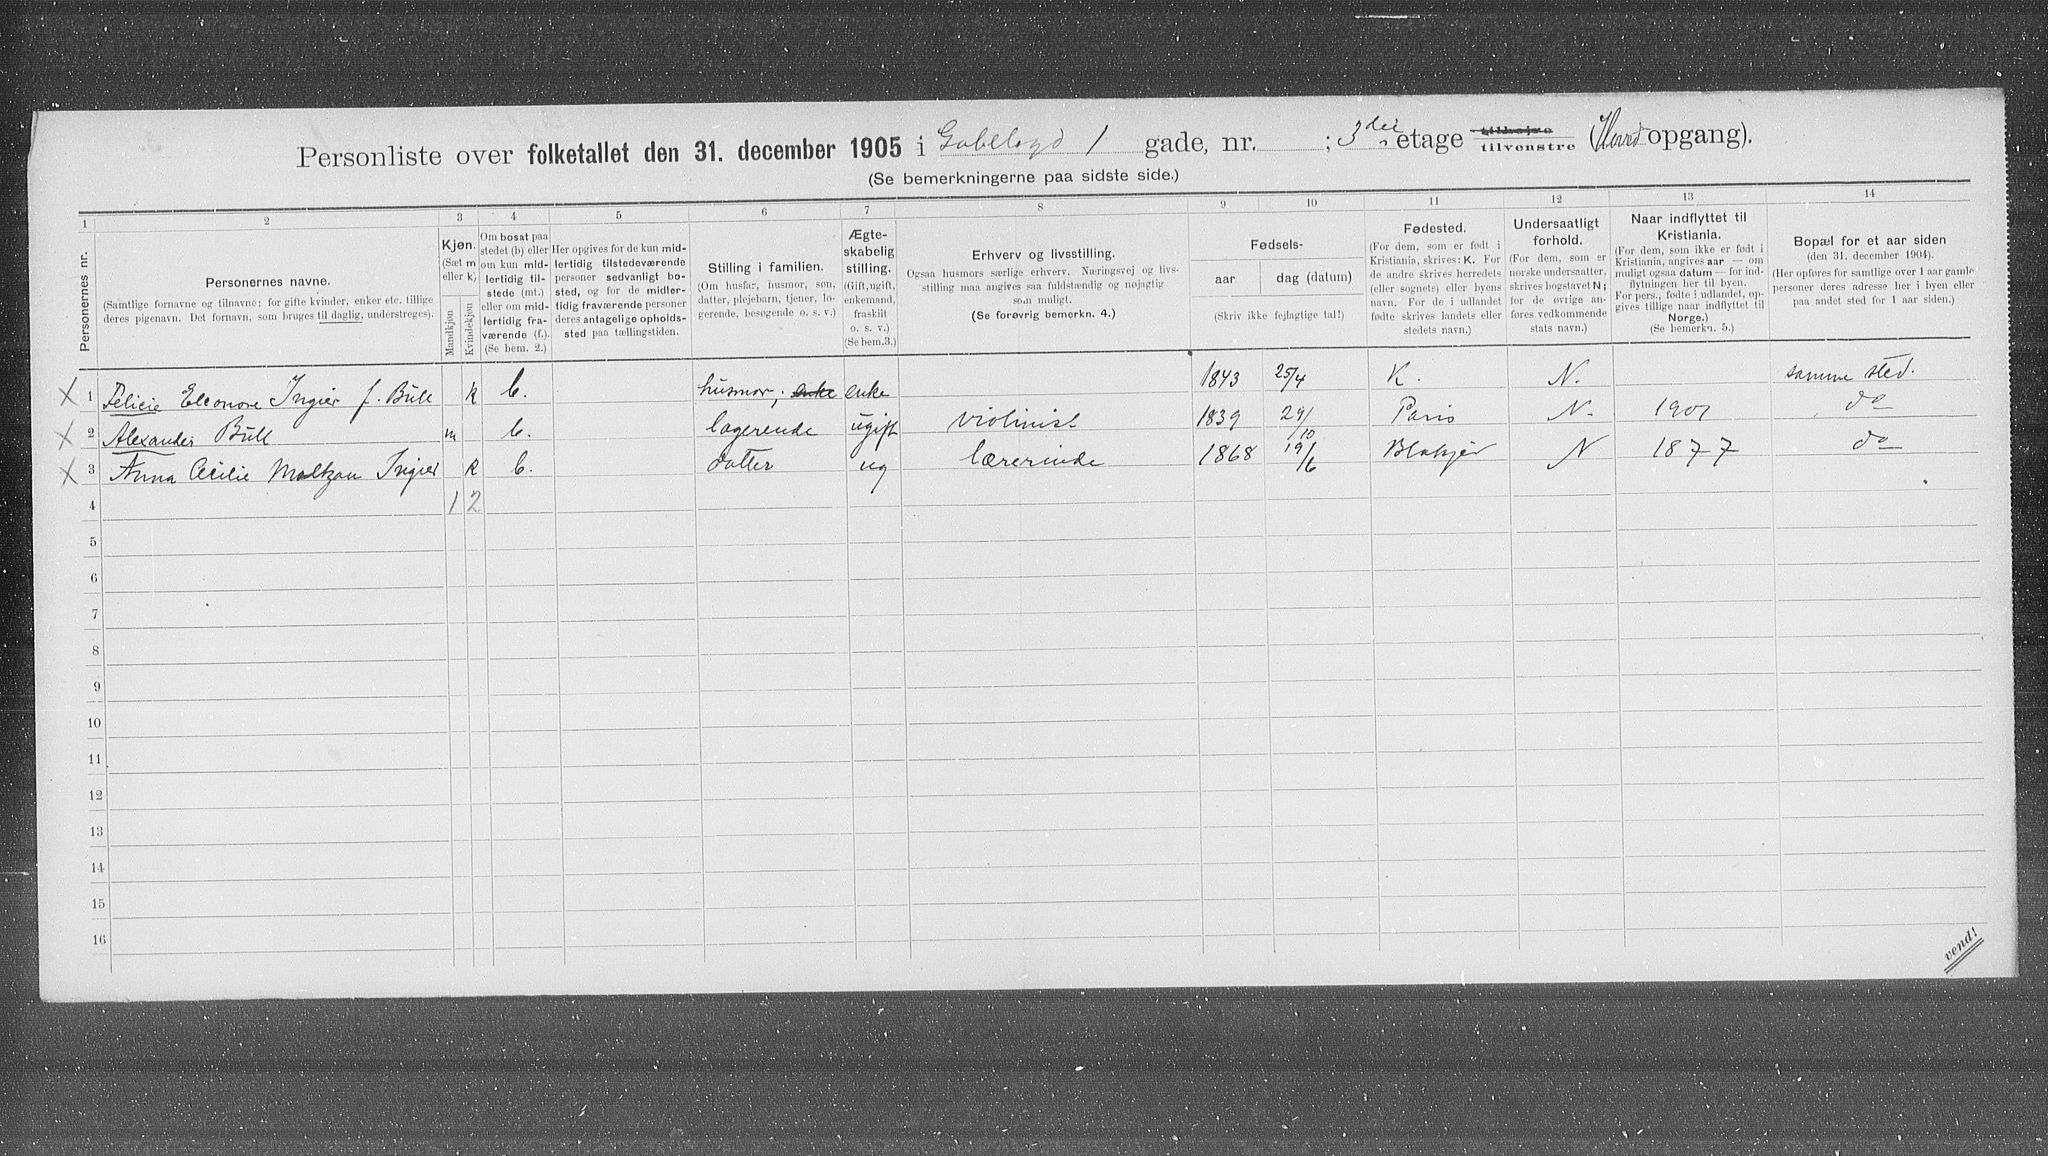 Personliste over folketallet den 31. december 1905 i Gabelsgd 1 gade, nr. ; 3die etage tilhøjre tilvenstre (Hoved opgang).
(Se bemerkningerne paa sidste side.)
1 2 3 4 5 6 7 8 9 10 11 12 13 14
Personernes nr.
Personernes navne.
(Samtlige fornavne og tilnavne; for gifte kvinder, enker etc. tillige deres pigenavn. Det fornavn, som bruges til daglig, understreges).
Kjøn.
(Sæt m eller k).
Mandkjøn
Kvindekjøn
Om bosat paa stedet (b) eller om kun midlertidig tilstede (mt.) eller om midlertidig fraværende (f.).
(Se bem. 2.)
Her opgives for de kun midlertidig tilstedeværende personer sedvanligt bosted, og for de midlertidig fraværende personer deres antagelige opholdssted paa tællingstiden.
Stilling i familien.
(Om husfar, husmor, søn, datter, plejebarn, tjener, logerende, besøgende o. s. v.)
Ægteskabelig stilling.
(Gift, ugift, enkemand, fraskilt o. s. v.)
(Se bem.3.)
Erhverv og livsstilling.
Ogsaa husmors særlige erhverv. Næringsvej og livsstilling maa angives saa fuldstændig og nøjagtig som muligt.
(Se forøvrig bemerkn. 4.)
Fødsels-
aar
dag (datum)
(Skriv ikke fejlagtige tal!)
Fødested.
(For dem, som er født i Kristiania, skrives: K. For de andre skrives herredets (eller sognets) eller byens navn. For de i udlandet fødte skrives landets eller stedets navn.)
Undersaatligt forhold.
(For dem, som er norske undersaatter, skrives bogstavet N; for de øvrige anføres vedkommende stats navn.)
Naar indflyttet til Kristiania.
(For dem, som ikke er født i Kristiania, angives aar — om muligt ogsaa datum — for indflytningen her til byen. For pers., fødte i udlandet, opgives tillige naar indflyttet til Norge.)
(Se bemerkn. 5.)
Bopæl for et aar siden
(den 31. december 1904).
(Her opføres for samtlige over 1 aar gamle personer deres adresse her i byen eller paa andet sted for 1 aar siden.)
X 1 Felicie Eleonore Ingier f. Bull K b. husmor; enke enke 1843 25/4 K. N. samme sted.
X 2 Alexander Bull m b. logerende ugift violinist 1839 29/10 Paris N. 1901 do
X 3 Anna Cecilie Maltzau Ingier K b. datter ug lærerinde 1868 19/6 Blakjer N 1877 do
4 1 2
5
6
7
8
9
10
11
12
13
14
15
16
vend!